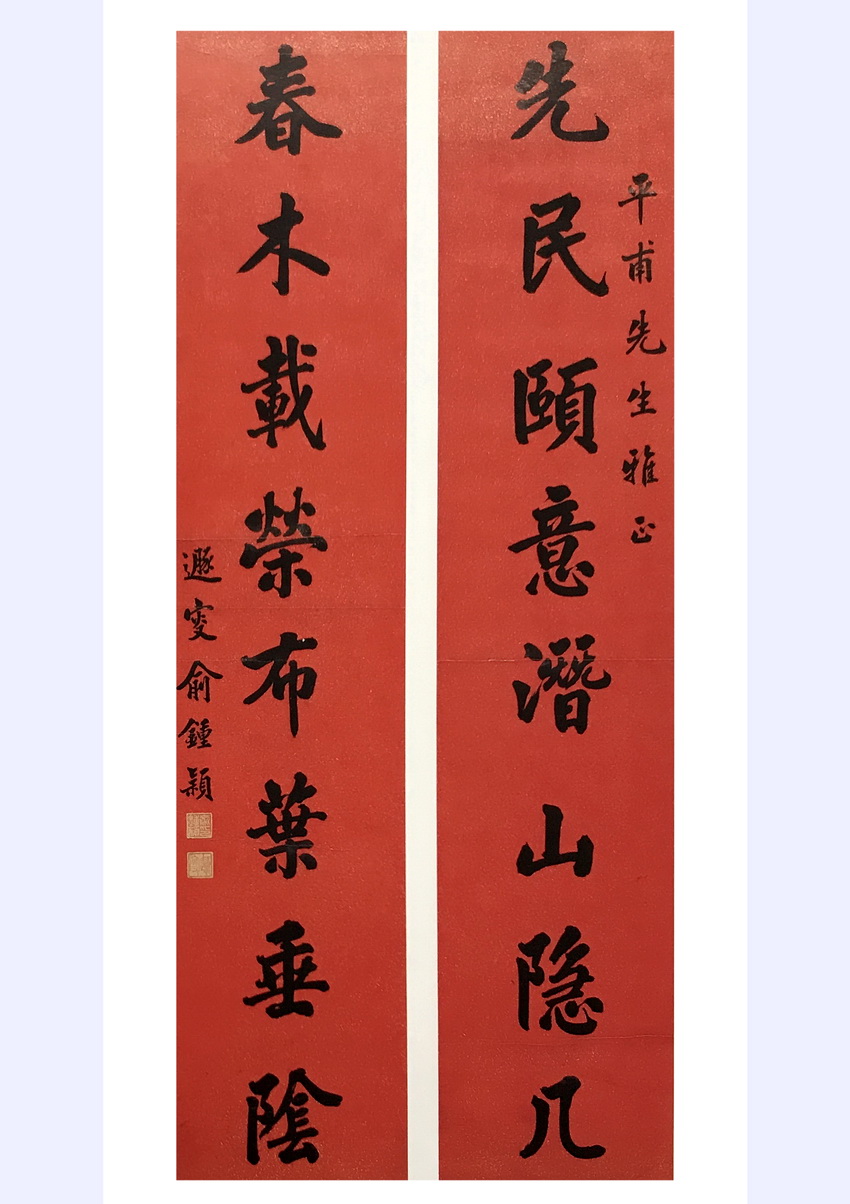 平甫先生雅正
先民頤意潛山隐几
春木載榮布葉垂陰
遯叟俞鍾穎